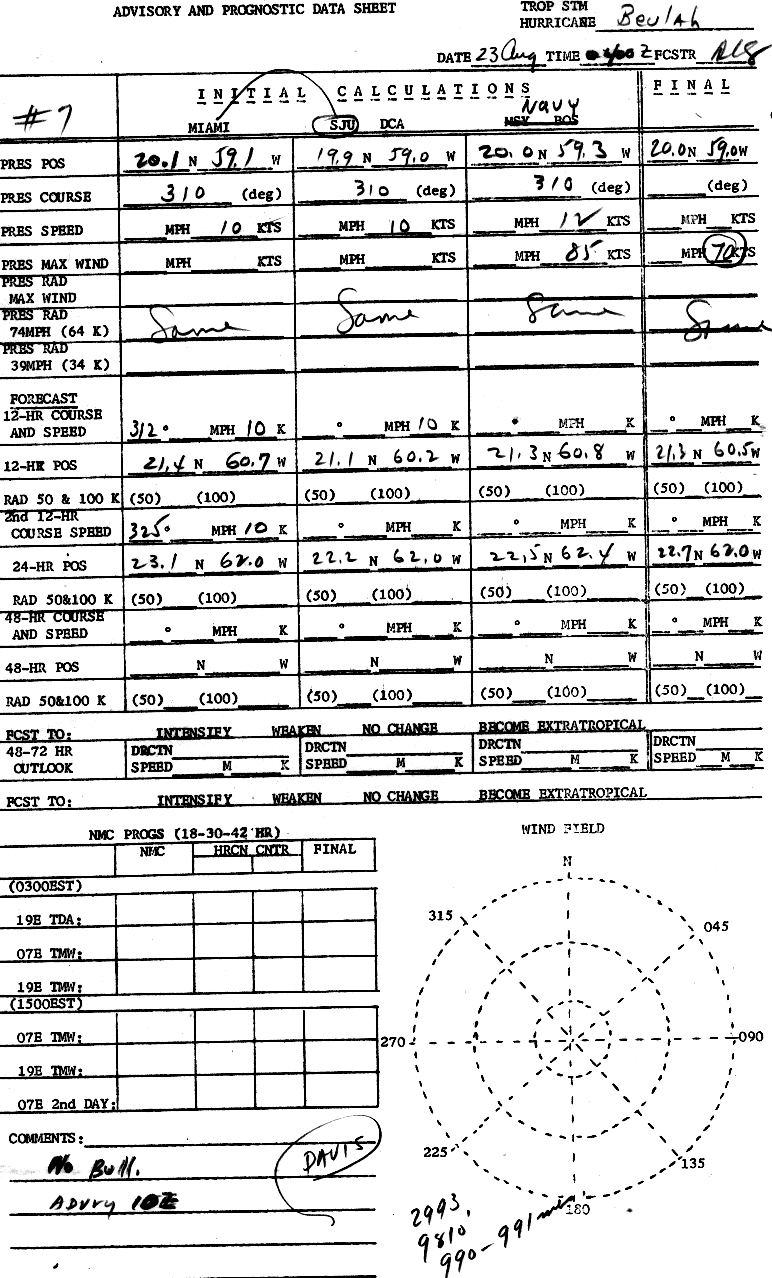 ADVISORY AND PROGNOSTIC DATA SHEET
TROP STM
HURRICANE Beulah
DATE 23 Aug TIME Z FCSTR
#7
INITIAL CALCULATIONS FINAL
Navy
MIAMI SJU DCA MSY BOS
PRES POS 20.1 N 59.1 W 19.9 N 59.0 W 20.0 N 59.3 W 20.0 N 59.0 W
PRES COURSE 310 (deg) 310 (deg) 310 (deg) (deg)
PRES SPEED MPH 10 KTS MPH 10 KTS MPH 12 KTS MPH KTS
PRES MAX WIND MPH KTS MPH KTS MPH 85 KTS MPH 70 KTS
PRES RAD
MAX WIND
PRES RAD
74MPH (64 K) Same Same Same Same
PRES RAD
39MPH (34 K)
FORECAST
12-HR COURSE
AND SPEED 312° MPH 10 K ° MPH 10 K ° MPH K ° MPH K
12-HR POS 21.4 N 60.7 W 21.1 N 60.2 W 21.3 N 60.8 W 21.3 N 60.5 W
RAD 50 & 100 K (50) (100) (50) (100) (50) (100) (50) (100)
2nd 12-HR
COURSE SPEED 325° MPH 10 K ° MPH K ° MPH K ° MPH K
24-HR POS 23.1 N 62.0 W 22.2 N 62.0 W 22.5 N 62.4 W 22.7 N 62.0 W
RAD 50&100 K (50) (100) (50) (100) (50) (100) (50) (100)
48-HR COURSE
AND SPEED ° MPH K ° MPH K ° MPH K ° MPH K
48-HR POS N W N W N W N W
RAD 50&100 K (50) (100) (50) (100) (50) (100) (50) (100)
FCST TO: INTENSIFY WEAKEN NO CHANGE BECOME EXTRATROPICAL
48-72 HR DRCTN DRCTN DRCTN DRCTN
OUTLOOK SPEED M K SPEED M K SPEED M K SPEED M K
FCST TO: INTENSIFY WEAKEN NO CHANGE BECOME EXTRATROPICAL
NMC PROGS (18-30-42 HR)
NMC HRCN CNTR FINAL
(0300EST)
19E TDA:
07E TMW:
19E TMW:
(1500EST)
07E TMW:
19E TMW:
07E 2nd DAY:
COMMENTS:
No Bull.
DAVIS
Advry 10Z
WIND FIELD
N
315 045
270 090
225 135
180
2993,
9810
990-991